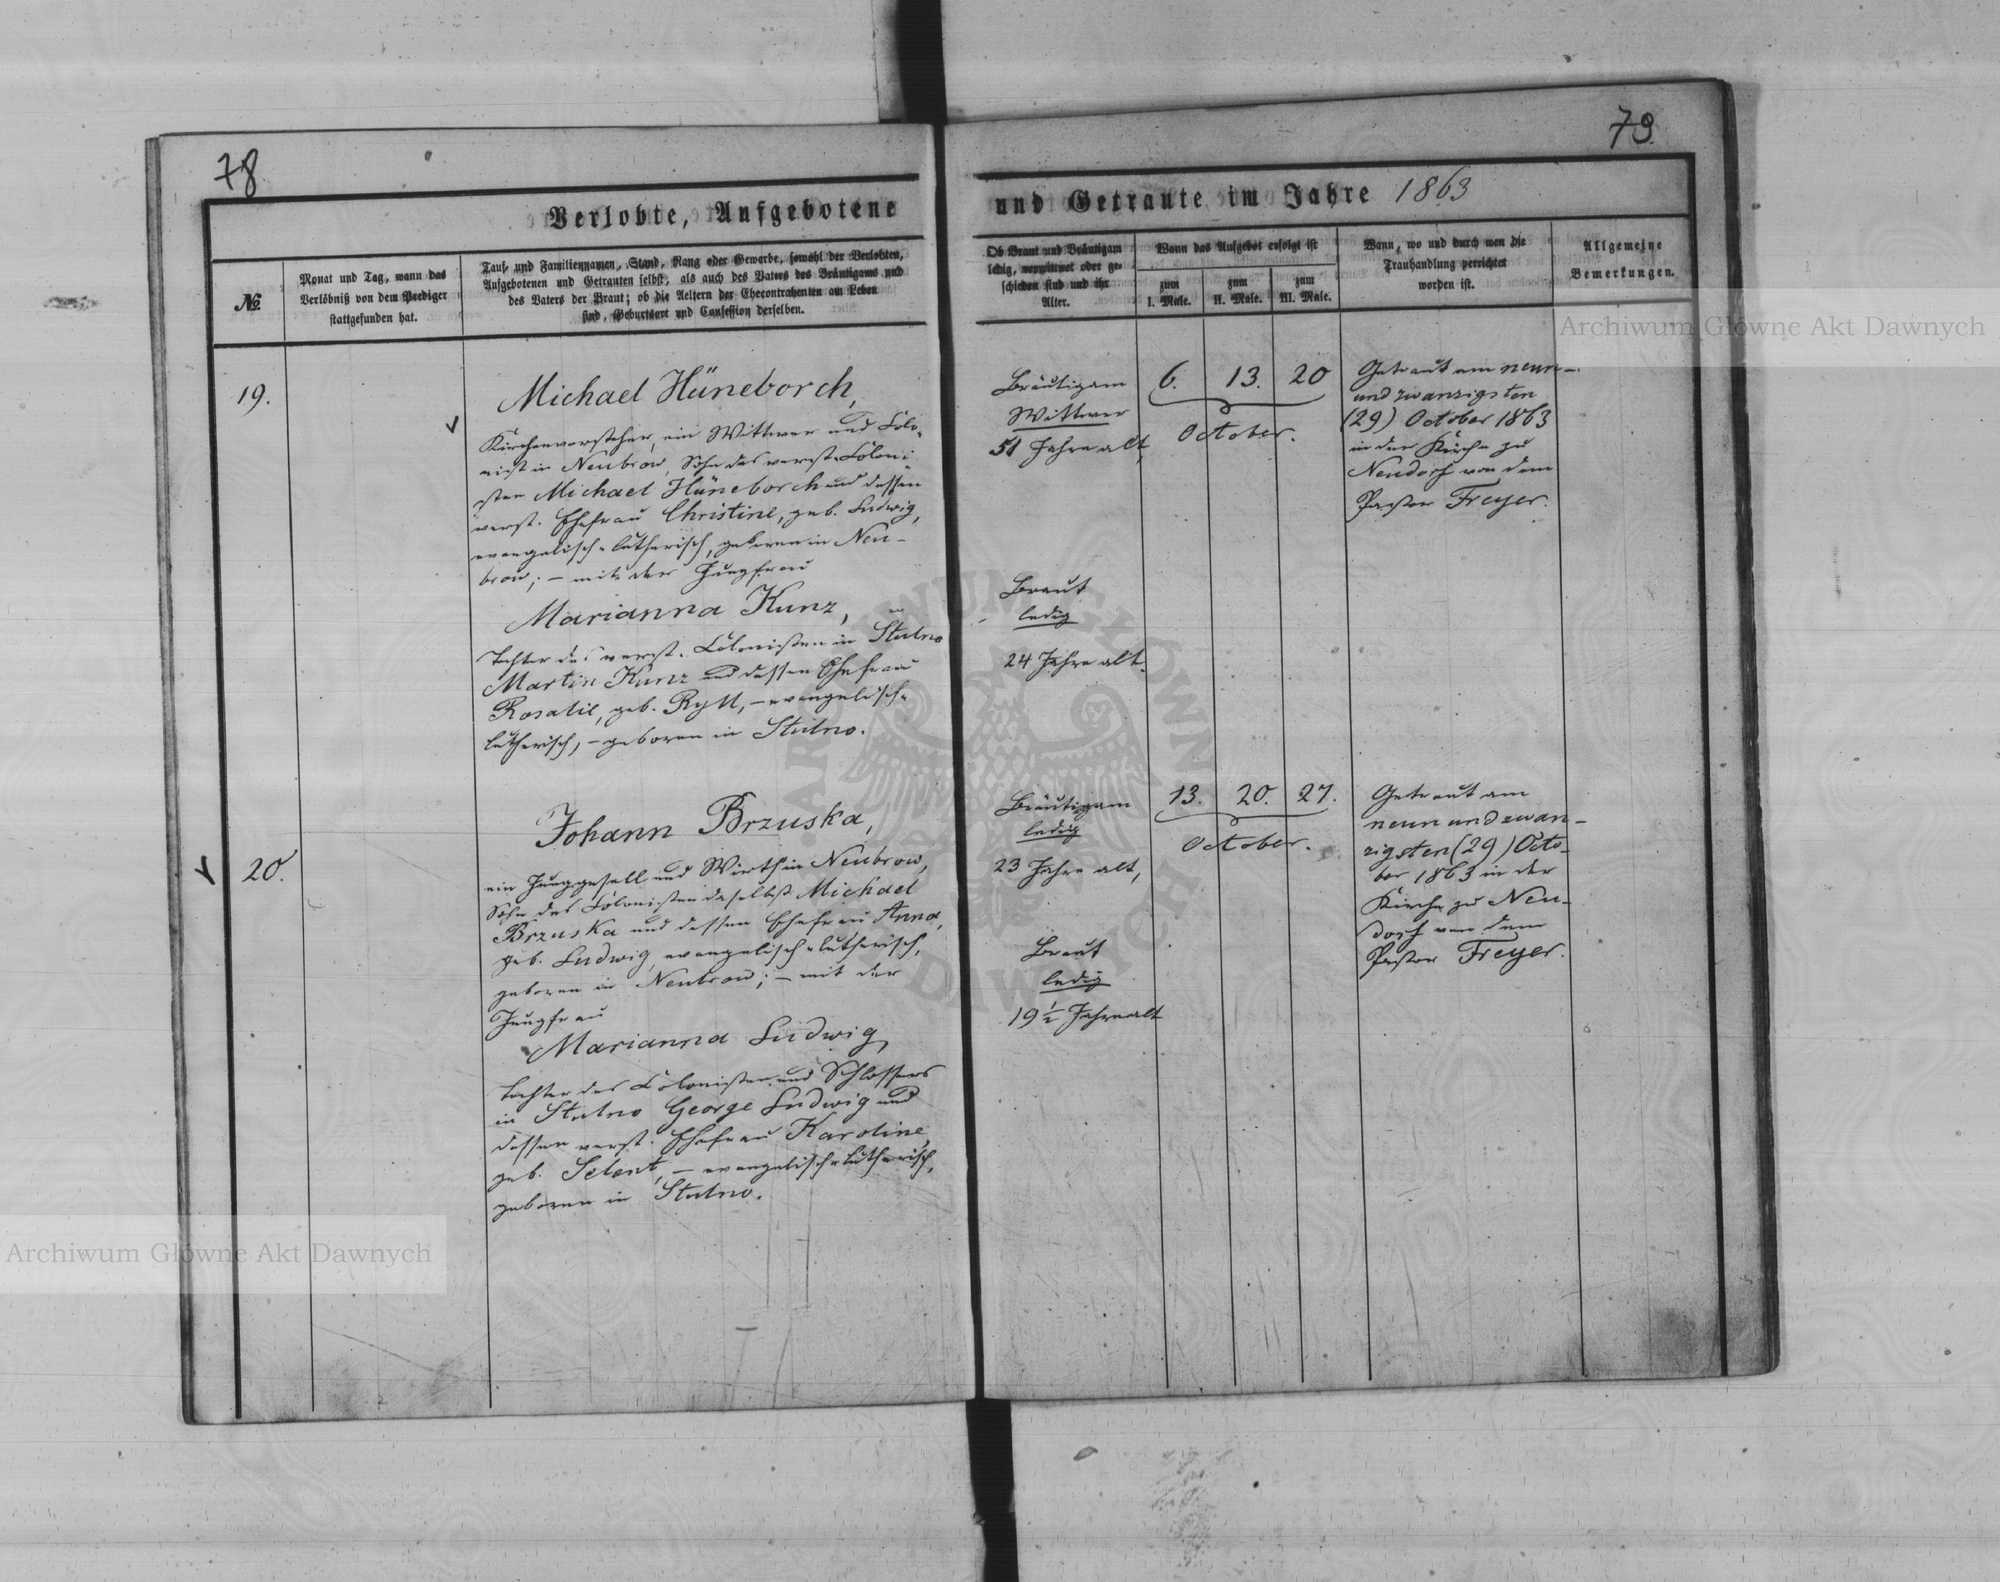 78
Verlobte, Aufgebotene
№
Monat und Tag, wann das
Verlöbniß von dem Prediger
stattgefunden hat.
Tauf- und Familiennamen, Stand, Rang oder Gewerbe, sowohl der Verlobten,
Aufgebotenen und Getrauten selbst, als auch des Vaters des Bräutigams und
des Vaters der Braut; ob die Aeltern der Ehecontrahenten am Leben
sind, Geburtsort und Confession derselben.
19.
Michael Hüneborch,
Kirchenvorsteher, ein Wittwer und Colo-
nist in Neubrow, Sohn des verst. Coloni-
sten Michael Hüneborch und dessen
verst. Ehefrau Christine, geb. Ludwig,
evangelisch-lutherisch, geboren in Neu-
brow; – mit der Jungfrau
Marianna Kunz,
Tochter des verst. Colonisten in Stulno
Martin Kunz und dessen Ehefrau
Rosalie, geb. Rytt, – evangelisch-
lutherisch, – geboren in Stulno.
20.
Johann Brzuska,
ein Junggesell und Wirth in Neubrow,
Sohn des Colonisten daselbst Michael
Brzuska und dessen Ehefrau Anna,
geb. Ludwig, evangelisch-lutherisch,
geboren in Neubrow; – mit der
Jungfrau
Marianna Ludwig,
Tochter des Colonisten und Schlossers
in Stulno George Ludwig und
dessen verst. Ehefrau Karoline,
geb. Selent, – evangelisch-lutherisch,
geboren in Stulno.
79.
und Getraute im Jahre 1863
Ob Braut und Bräutigam
ledig, verwittwet oder ge-
schieden sind und ihr
Alter.
Wann das Aufgebot erfolgt ist
zum
I. Male.
zum
II. Male.
zum
III. Male.
Wann, wo und durch wen die
Trauhandlung verrichtet
worden ist.
Allgemeine
Bemerkungen.
Bräutigam
Wittwer
51 Jahre alt,
6. 13. 20
October.
Getraut am neun-
undzwanzigsten
(29) October 1863
in der Kirche zu
Neudorf von dem
Pastor Freyer.
Braut
ledig
24 Jahre alt.
Bräutigam
ledig
23 Jahre alt,
13. 20. 27.
October.
Getraut am
neunundzwan-
zigsten (29) Octo-
ber 1863 in der
Kirche zu Neu-
dorf von dem
Pastor Freyer.
Braut
ledig
19 ½ Jahre alt
Archiwum Główne Akt Dawnych
Archiwum Główne Akt Dawnych
ARCHIWUM GŁÓWNE AKT DAWNYCH